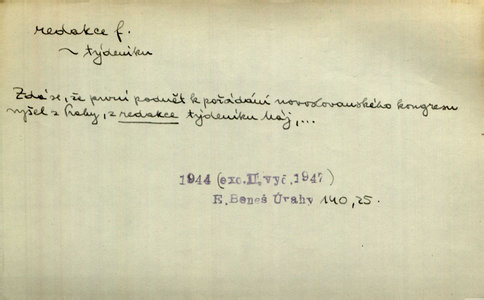 redakce f.
~ týdeníku
Zdá se, že první podnět k pořádání novoslovanského kongresu
vyšel z Prahy, z redakce týdeníku Máj,...
1944 (exc. II. vyč, 1947)
E. Beneš Úvahy 140, 25.